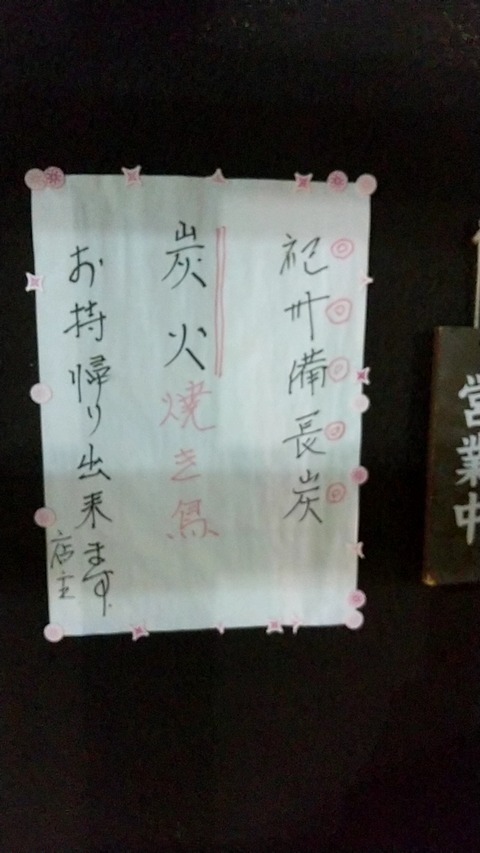 紀州備長炭
炭火焼き鳥
お持帰り出来ます
店主
営業中